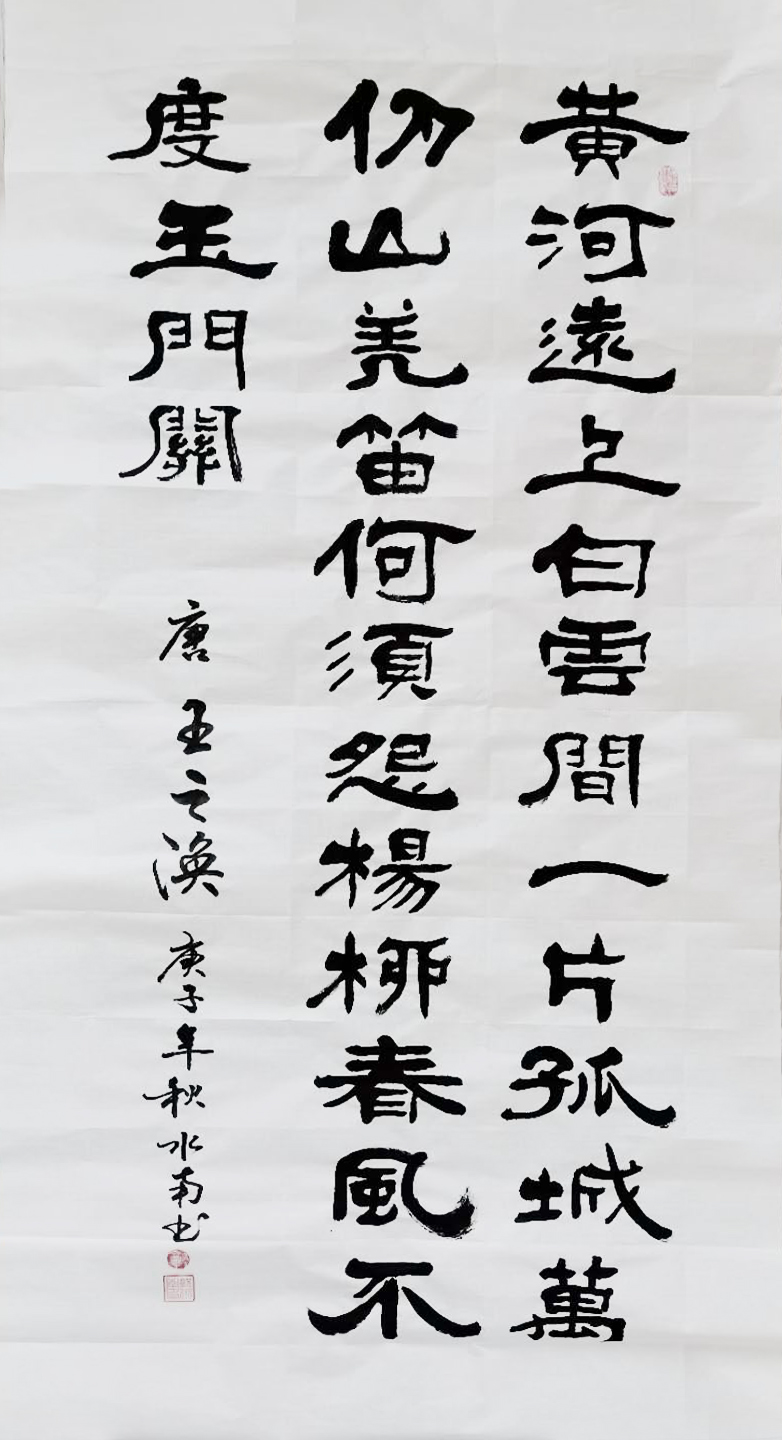 黃河遠上白雲間一片孤城萬
仞山羌笛何須怨楊柳春風不
度玉門關
唐王之渙庚子年秋水南书